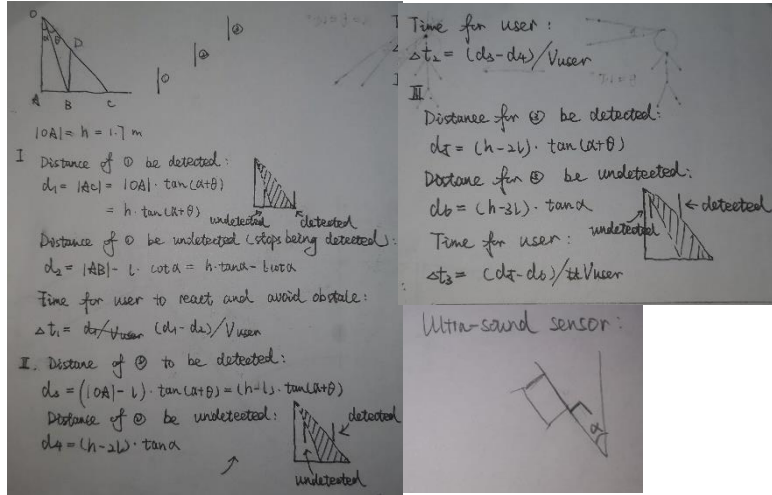 O
α θ
D
A B C
①
②
③
|OA| = h = 1.7 m
I Distance of ① be detected:
d₁ = |AC| = |OA| · tan(α+θ)
= h · tan(α+θ)
undetected detected
Distance of ① be undetected (stops being detected):
d₂ = |AB| - l · cotα = h·tanα - l·cotα
Time for user to react and avoid obstale:
Δt₁ = (d₁-d₂)/Vuser
II. Distane of ② to be detected:
d₃ = (|OA| - l) · tan(α+θ) = (h-l) · tan(α+θ)
Distance of ② be undetected:
d₄ = (h-2l) · tanα
detected
undetected
Time for user:
Δt₂ = (d₃-d₄)/Vuser
III
Distance for ③ be detected:
d₅ = (h-2l) · tan(α+θ)
Distane for ③ be undetected:
d₆ = (h-3l) · tanα
undetected detected
Time for user:
Δt₃ = (d₅-d₆)/Vuser
Ultra-sound sensor:
α